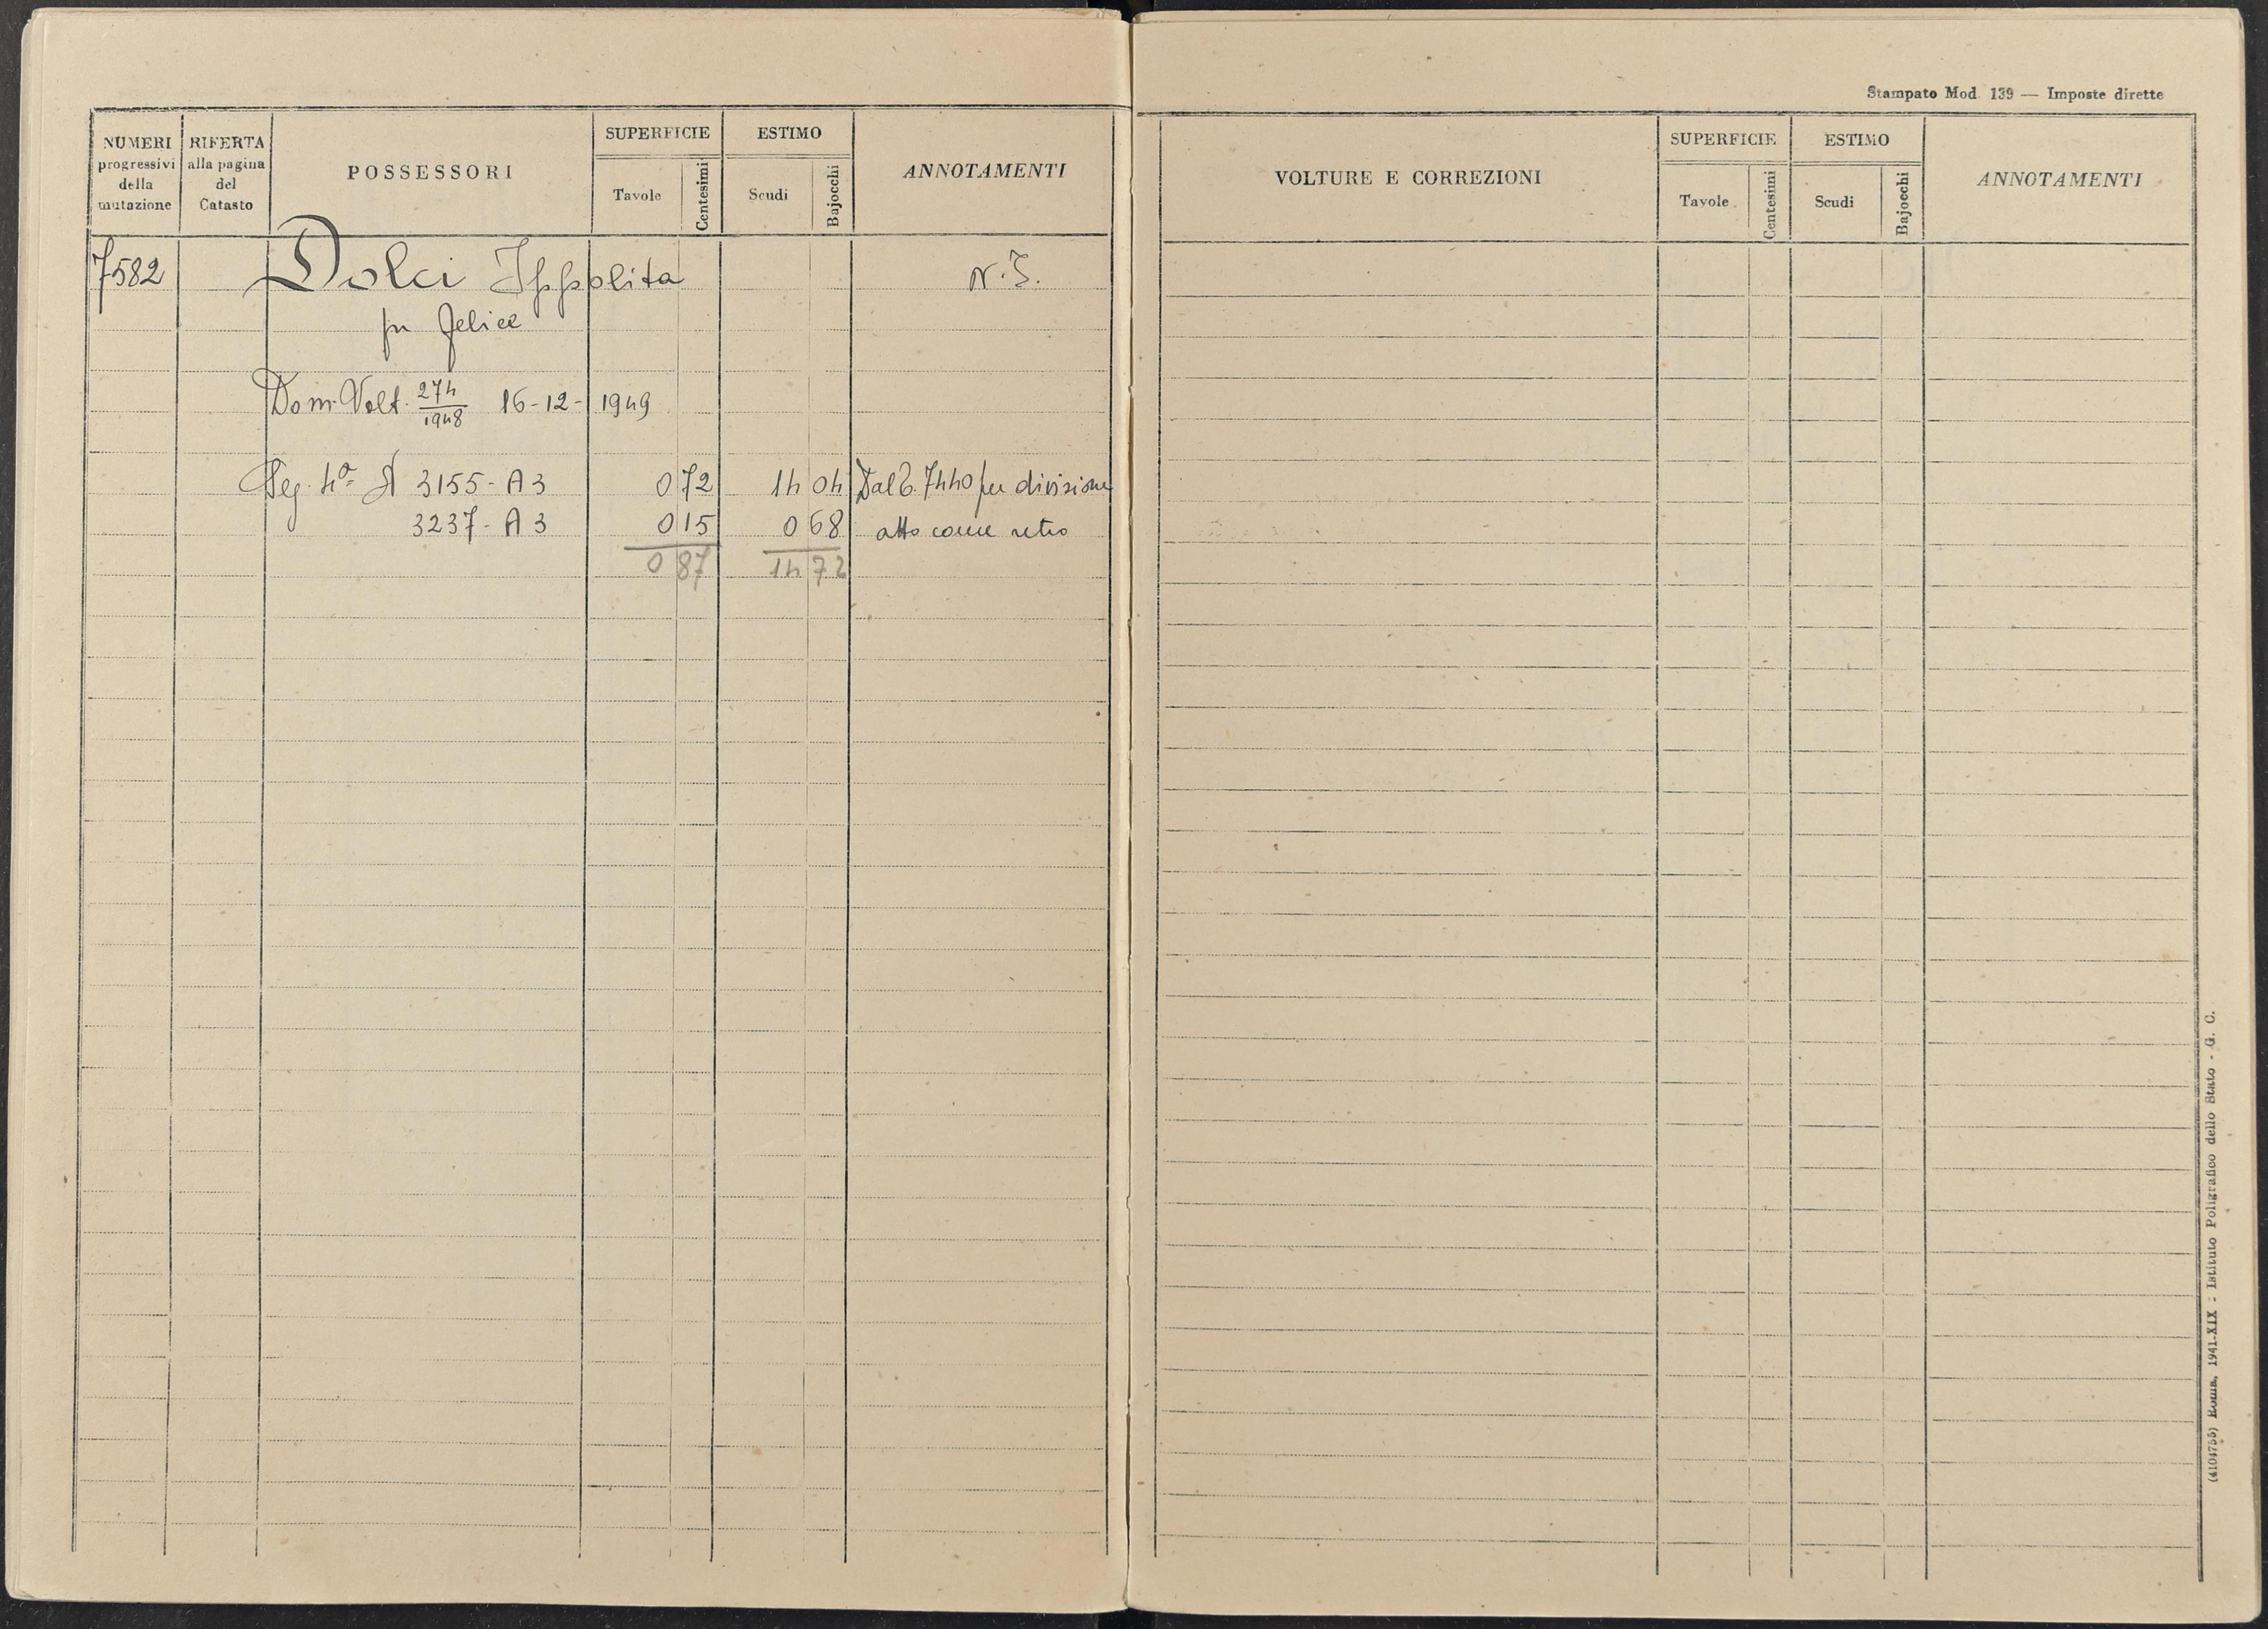 NUMERI progressivi della mutazione
RIFERTA alla pagina del Catasto
POSSESSORI
SUPERFICIE
Tavole
Centesimi
ESTIMO
Scudi
Bajocchi
ANNOTAMENTI
7582 Dolci Ippolita
fu Felice
Dom. Volt. 274/1948 16-12-1949
Seg. 4ª 3155-A3 0 72 14 04 Dal 7440 per divisione
3237-A3 0 15 0 68 atto come retro
0 87 14 72
Stampato Mod. 139 — Imposte dirette
VOLTURE E CORREZIONI
SUPERFICIE
Tavole
Centesimi
ESTIMO
Scudi
Bajocchi
ANNOTAMENTI
(4104755) Roma, 1941-XIX : Istituto Poligrafico dello Stato - G. C.